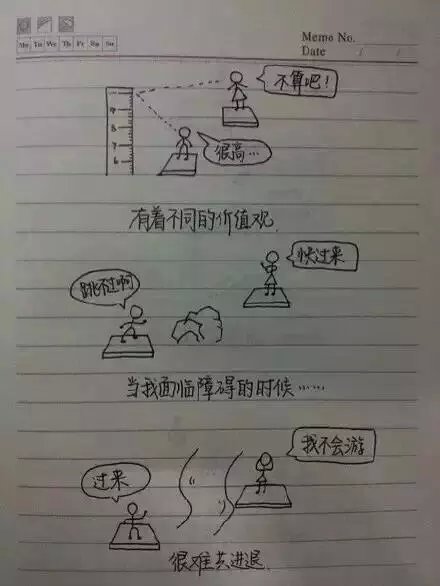 Memo No.
Mo Tu We Th Fr Sa Su
Date / /
不算吧!
很高…
有着不同的价值观
快过来
跳不过啊
当我面临障碍的时候……
我不会游
过来
很难去进退